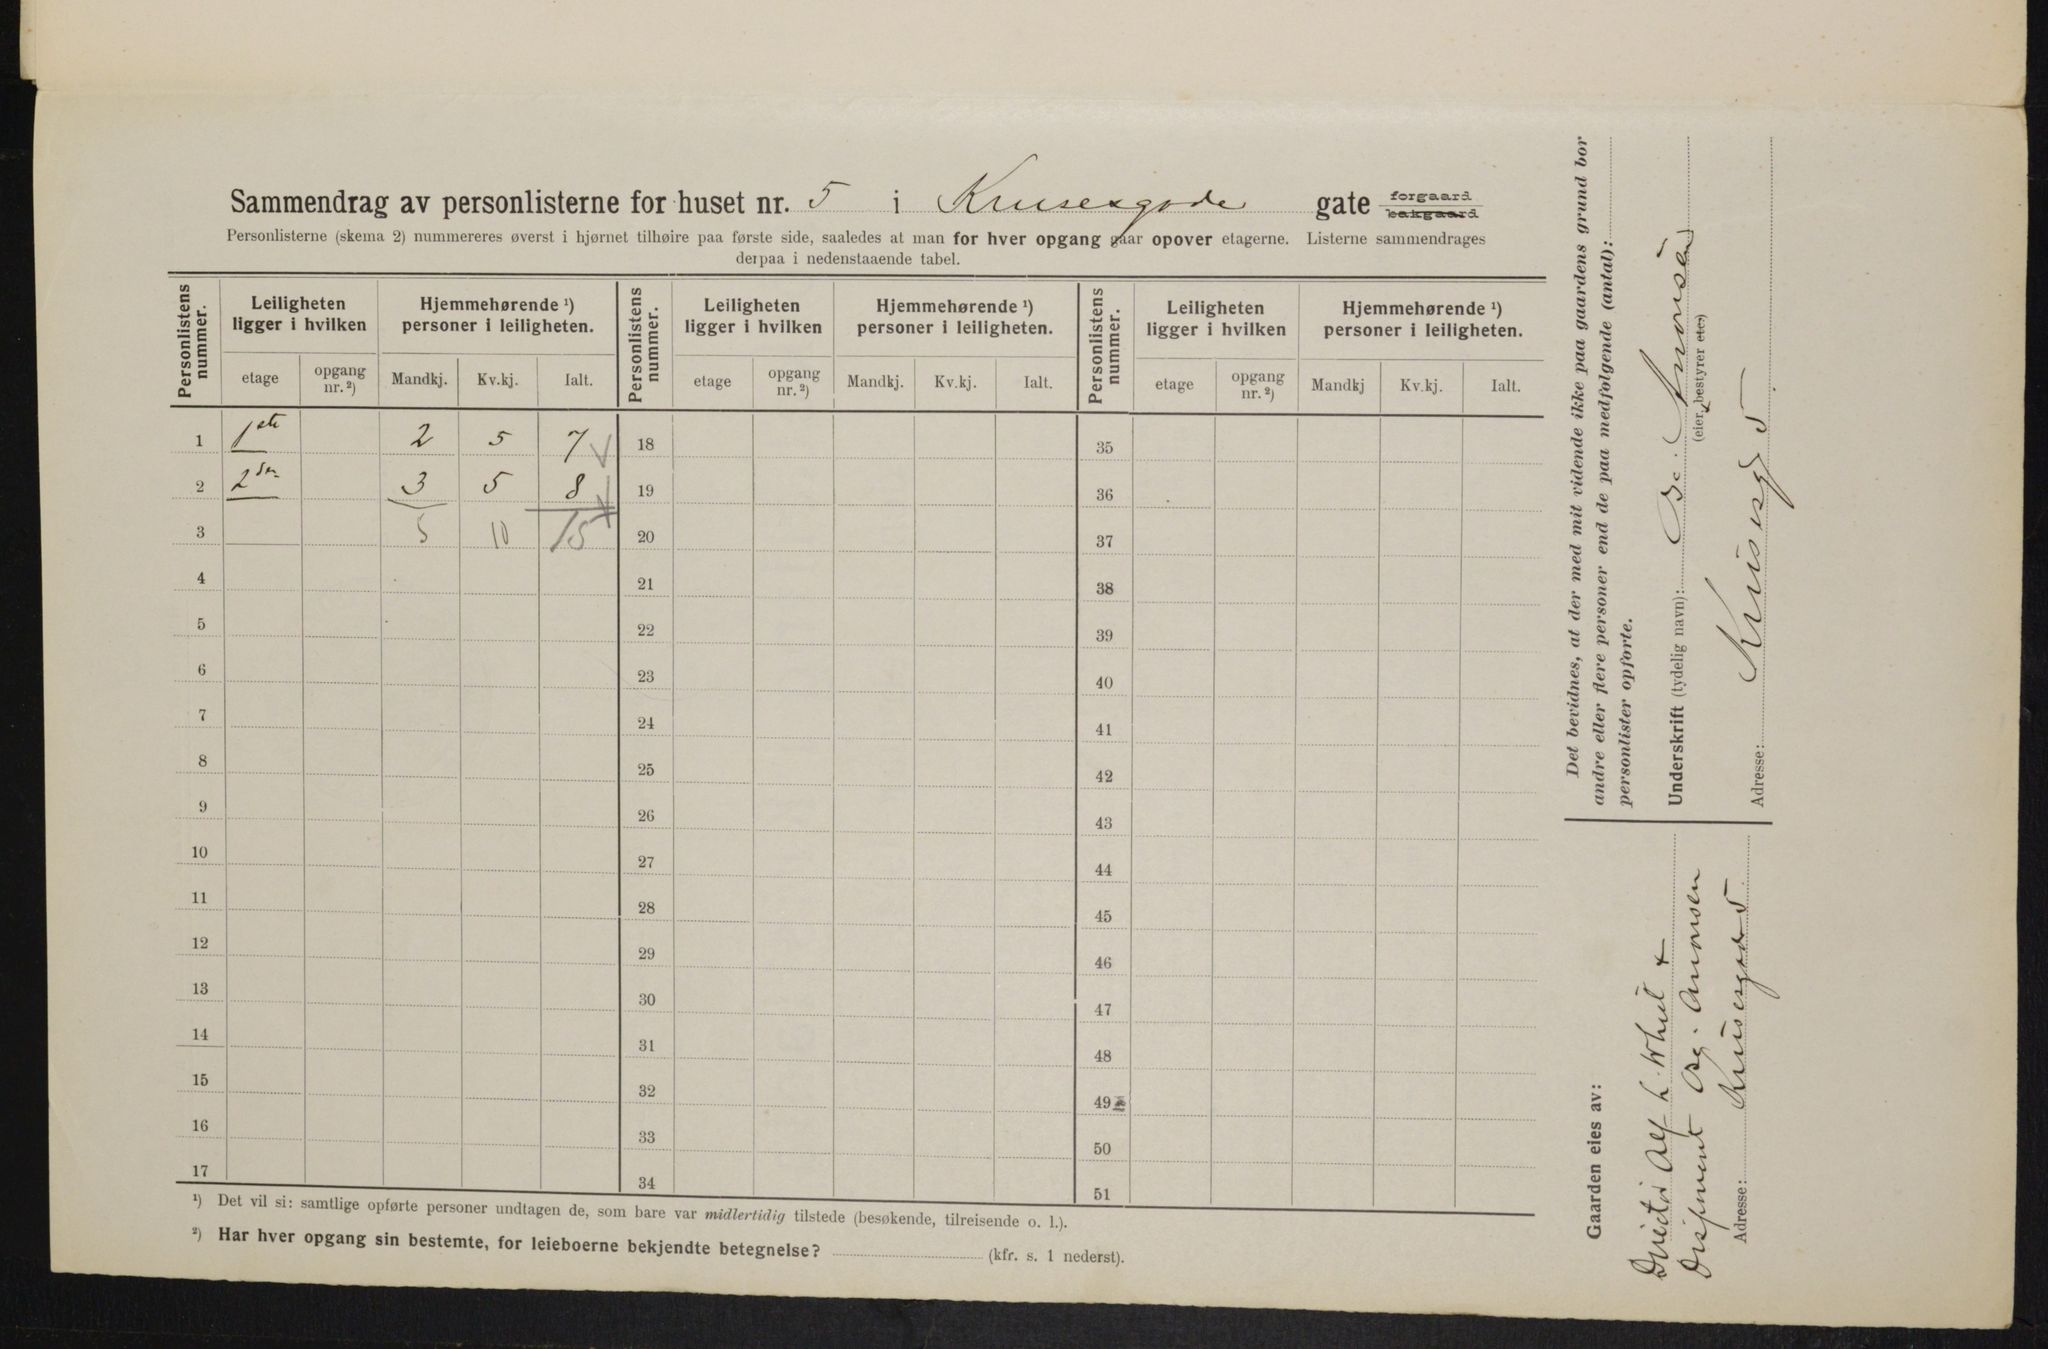 Sammendrag av personlisterne for huset nr. 5 i Krusesgade gate forgaard bakgaard
Personlisterne (skema 2) nummereres øverst i hjørnet tilhøire paa første side, saaledes at man for hver opgang gaar opover etagerne. Listerne sammendrages
derpaa i nedenstaaende tabel.
Personlistens nummer. Leiligheten ligger i hvilken Hjemmehørende ¹) personer i leiligheten. Personlistens nummer. Leiligheten ligger i hvilken Hjemmehørende ¹) personer i leiligheten. Personlistens nummer. Leiligheten ligger i hvilken Hjemmehørende ¹) personer i leiligheten.
etage opgang nr. ²) Mandkj. Kv.kj. Ialt. etage opgang nr. ²) Mandkj. Kv.kj. Ialt. etage opgang nr. ²) Mandkj Kv.kj. Ialt.
1 1ste 2 5 7 18 35
2 2den 3 5 8 19 36
3 5 10 15 20 37
4 21 38
5 22 39
6 23 40
7 24 41
8 25 42
9 26 43
10 27 44
11 28 45
12 29 46
13 30 47
14 31 48
15 32 49
16 33 50
17 34 51
¹) Det vil si: samtlige opførte personer undtagen de, som bare var midlertidig tilstede (besøkende, tilreisende o. l.).
²) Har hver opgang sin bestemte, for leieboerne bekjendte betegnelse? (kfr. s. 1 nederst).
Det bevidnes, at der med mit vidende ikke paa gaardens grund bor
andre eller flere personer end de paa medfølgende (antal):
personlister opførte.
Underskrift (tydelig navn): Amonsen
(eier, bestyrer etc)
Adresse: Krusesgd 5
Gaarden eies av:
Alf L. &
Disponent Ag. Amonsen
Adresse: Krusesgade 5